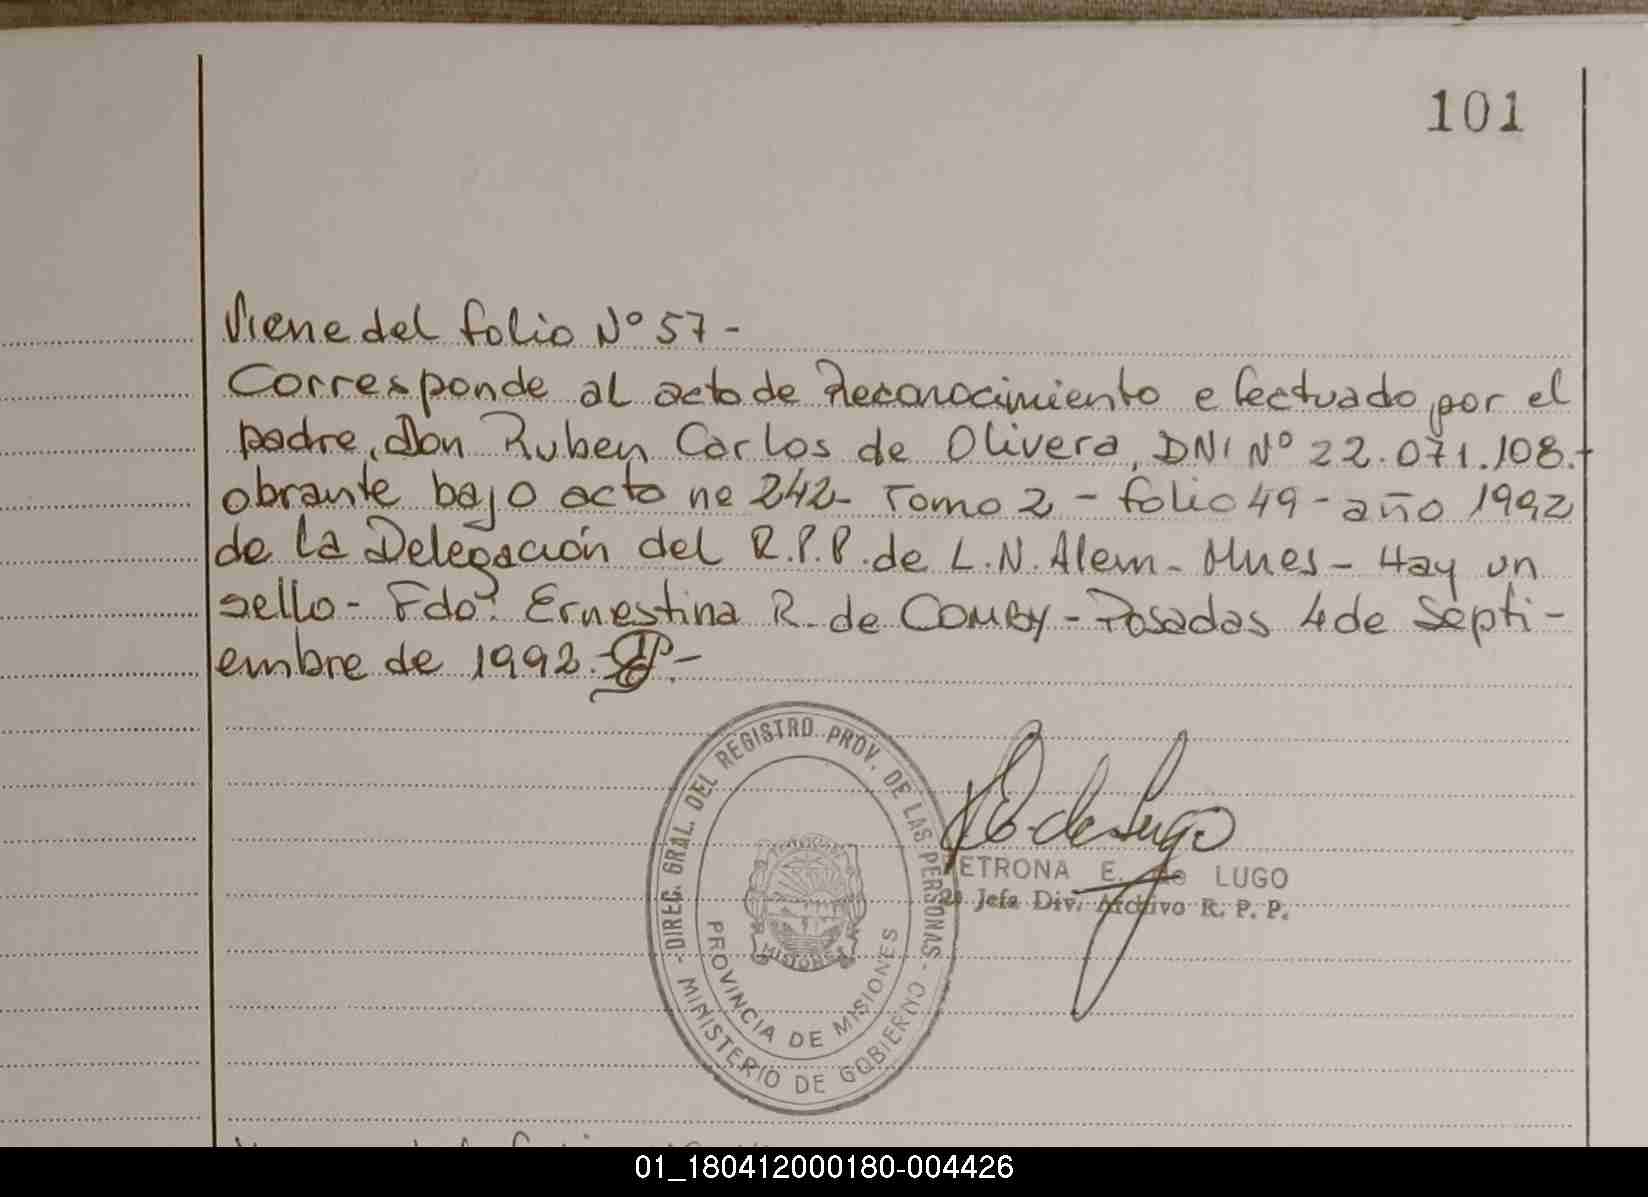 101
Viene del folio Nº 57 -
Corresponde al acta de Reconocimiento efectuado por el
padre, Don Ruben Carlos de Olivera, DNI Nº 22.071.108.-
obrante bajo acta nº 242 - Tomo 2 - folio 49 - año 1992
de la Delegación del R.P.P. de L.N. Alem - Mnes - Hay un
sello - Fdo: Ernestina R. de Comby - Posadas 4 de Septi-
embre de 1992.-
-DIREC. GRAL. DEL REGISTRO PROV. DE LAS PERSONAS-
MINISTERIO DE GOBIERNO
PROVINCIA DE MISIONES
MISIONES
E. de Lugo
PETRONA E. de LUGO
2ª Jefa Div. Archivo R. P. P.
01_180412000180-004426